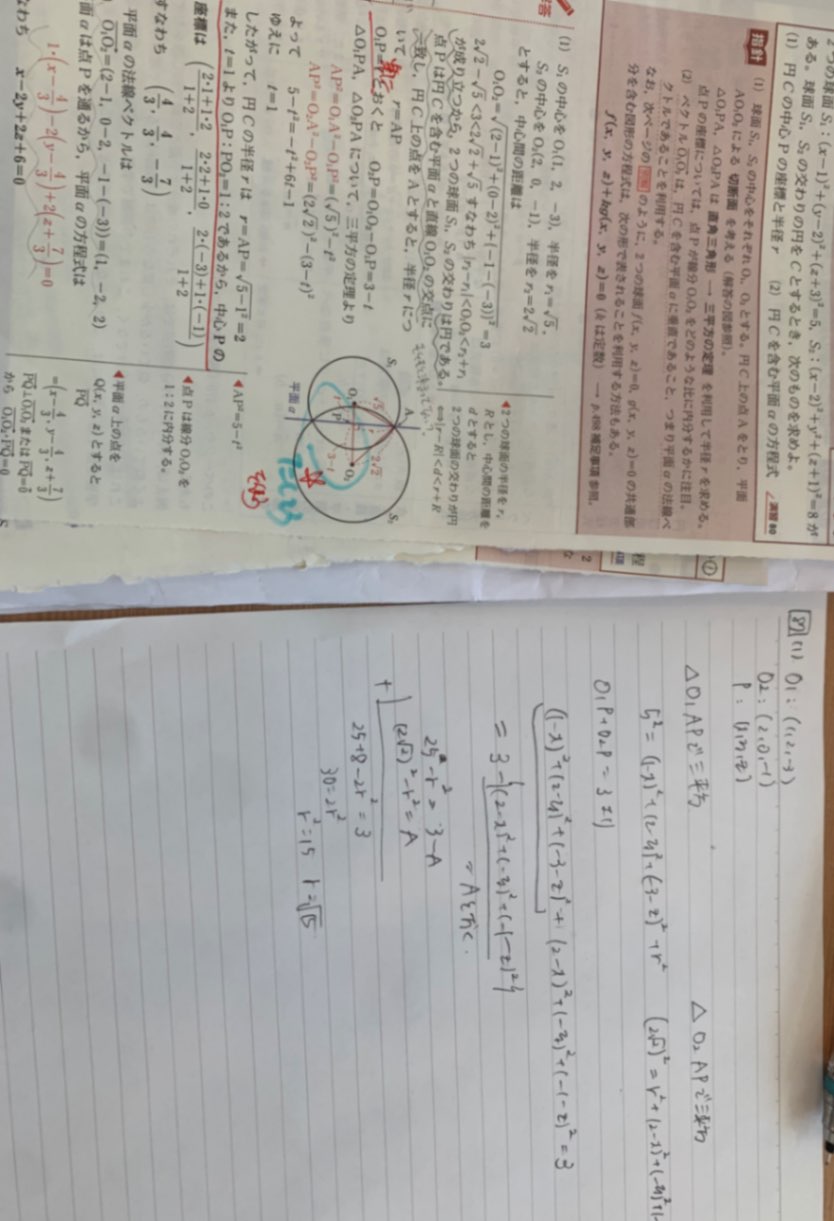 2つの球面 S₁：(x−1)²+(y−2)²+(z+3)²=5, S₂：(x−2)²+y²+(z+1)²=8 が
ある。球面 S₁, S₂ の交わりの円を C とするとき，次のものを求めよ。
(1) 円 C の中心 P の座標と半径 r　(2) 円 C を含む平面 α の方程式
演習 80
指針
(1) 球面 S₁, S₂ の中心をそれぞれ O₁, O₂ とする。円 C 上の点 A をとり，平面
AO₁O₂ による 切断面 を考える (解答の図参照)。
△O₁PA, △O₂PA は 直角三角形 → 三平方の定理 を利用して半径 r を求める。
点 P の座標については，点 P が線分 O₁O₂ をどのような比に内分するかに注目。
(2) ベクトル O₁O₂ は，円 C を含む平面 α に垂直であること，つまり平面 α の法線ベ
クトルであることを利用する。
なお，次ページの 別解 のように，2つの球面 f(x, y, z)=0, g(x, y, z)=0 の共通部
分を含む図形の方程式は，次の形で表されることを利用する方法もある。
f(x, y, z)+kg(x, y, z)=0 (k は定数) → p.498 補足事項 参照。
解答
(1) S₁ の中心を O₁(1, 2, −3)，半径を r₁=√5，
S₂ の中心を O₂(2, 0, −1)，半径を r₂=2√2
とすると，中心間の距離は
O₁O₂=√{(2−1)²+(0−2)²+{−1−(−3)}²}=3
2√2−√5<3<2√2+√5 すなわち |r₂−r₁|<O₁O₂<r₂+r₁
が成り立つから，2つの球面 S₁, S₂ の交わりは円である。
点 P は円 C を含む平面 α と直線 O₁O₂ の交点に
一致し，円 C 上の点を A とすると，半径 r につ
いて　r=AP
O₁P=t とおくと　O₂P=O₁O₂−O₁P=3−t
△O₁PA, △O₂PA について，三平方の定理より
AP²=O₁A²−O₁P²=(√5)²−t²
AP²=O₂A²−O₂P²=(2√2)²−(3−t)²
よって　5−t²=−t²+6t−1
ゆえに　t=1
したがって，円 C の半径 r は　r=AP=√(5−1²)=2
また，t=1 より O₁P：PO₂=1：2 であるから，中心 P の
座標は (2·1+1·2/1+2, 2·2+1·0/1+2, 2·(−3)+1·(−1)/1+2)
すなわち (4/3, 4/3, −7/3)
平面 α の法線ベクトルは
O₁O₂=(2−1, 0−2, −1−(−3))=(1, −2, 2)
面 α は点 P を通るから，平面 α の方程式は
1·(x−4/3)−2(y−4/3)+2(z+7/3)=0
なわち　x−2y+2z+6=0
◀2つの球面の半径を r,
R とし，中心間の距離を
d とすると
2つの球面の交わりが円
⇔|r−R|<d<r+R
S₁
A
√5
2√2
O₁
P
O₂
3−t
S₂
平面 α
◀AP²=5−t²
◀点 P は線分 O₁O₂ を
1：2 に内分する。
◀平面 α 上の点を
Q(x, y, z) とすると
PQ
=(x−4/3, y−4/3, z+7/3)
PQ⊥O₁O₂ または PQ=0
から O₁O₂·PQ=0
(1) O₁：(1,2,-3)
O₂：(2,0,-1)
P：(x,y,z)
△O₁APで三平方　△O₂APで三平方
5²=(1-x)²+(2-y)²+(-3-z)²+r²　(2√2)²=r²+(2-x)²+(-y)²+(-
O₁P+O₂P=3より
(1-x)²+(2-y)²+(-3-z)²+(2-x)²+(-y)²+(-1-z)²=3
=3-{(2-x)²+(-y)²+(-1-z)²}
Aと置く。
25-r²=3-A
+) (2√2)²-r²=A
25+8-2r²=3
30=2r²
r²=15　r=√15